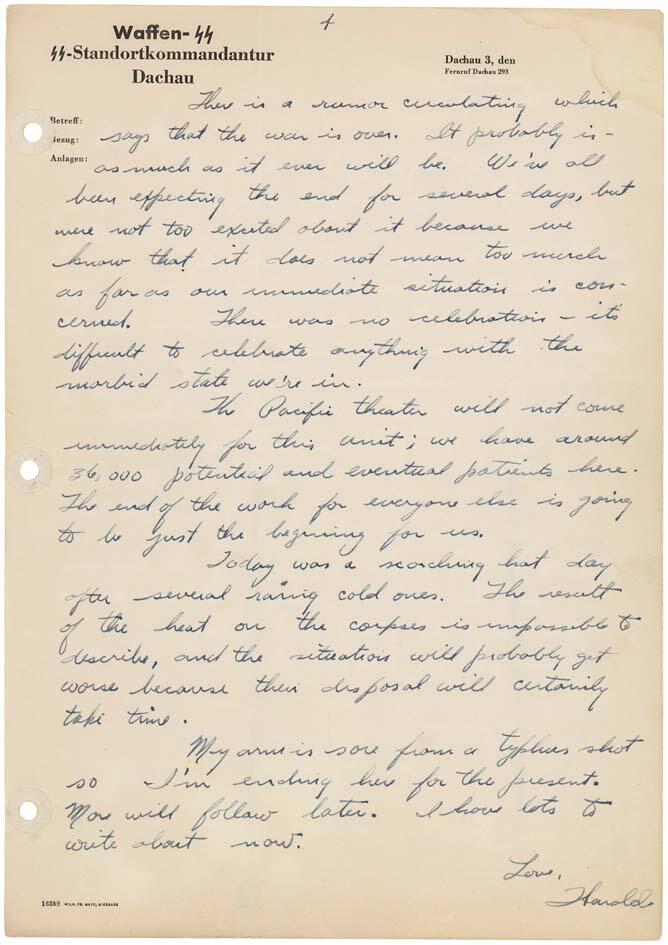 4
Waffen-SS
SS-Standortkommandantur
Dachau
Dachau 3, den
Fernruf Dachau 293
Betreff:
Bezug:
Anlagen:
There is a rumor circulating which
says that the war is over. It probably is -
as much as it ever will be. We've all
been expecting the end for several days, but
were not too excited about it because we
know that it does not mean too much
as far as our immediate situation is con-
cerned. There was no celebration - it's
difficult to celebrate anything with the
morbid state we're in.
The Pacific theater will not come
immediately for this unit; we have around
36,000 potential and eventual patients here.
The end of the work for everyone else is going
to be just the beginning for us.
Today was a scorching hot day
after several rainy cold ones. The result
of the heat on the corpses is impossible to
describe, and the situation will probably get
worse because their disposal will certainly
take time.
My arm is sore from a typhus shot
so I'm ending here for the present.
More will follow later. I have lots to
write about now.
Love,
Harold
16359